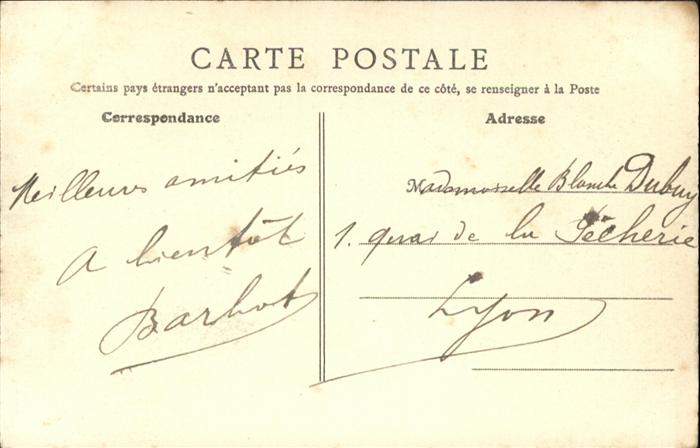 CARTE POSTALE
Certains pays étrangers n'acceptant pas la correspondance de ce côté, se renseigner à la Poste
Correspondance
Meilleures amitiés
A bientôt
Barbot
Adresse
Mademoiselle Blanche Dubuy
1. quai de la Pêcherie
Lyon